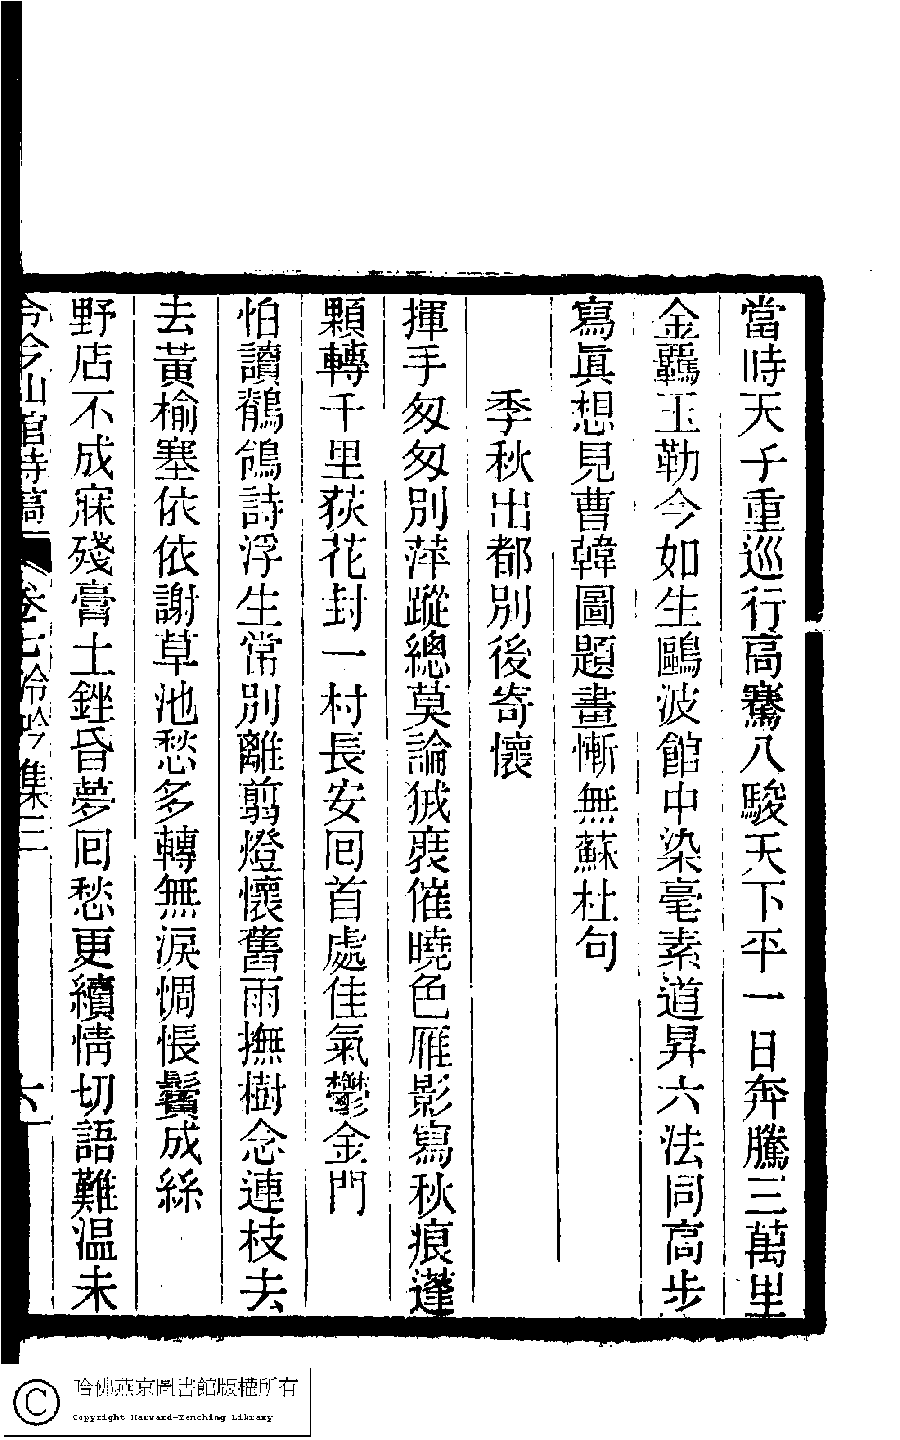 當時天子重巡行高騫八駿天下平一日奔騰三萬里
金羈玉勒今如生鷗波館中染毫素道昇六法同高步
寫眞想見曹韓圖題畫慚無蘇杜句
季秋出都別後寄懷
揮手匆匆別萍蹤總莫論狨裘催曉色雁影寫秋痕蓬
顆轉千里荻花封一村長安回首處佳氣鬱金門
怕讀鶺鴒詩浮生常別離翦燈懷舊雨撫樹念連枝去
去黃榆塞依依謝草池愁多轉無淚惆悵鬢成絲
野店不成寐殘膏土銼昏夢回愁更續情切語難温未
山館詩稿 卷七吟集三 六
哈佛燕京圖書館版權所有
Copyright Harvard-Yenching Library